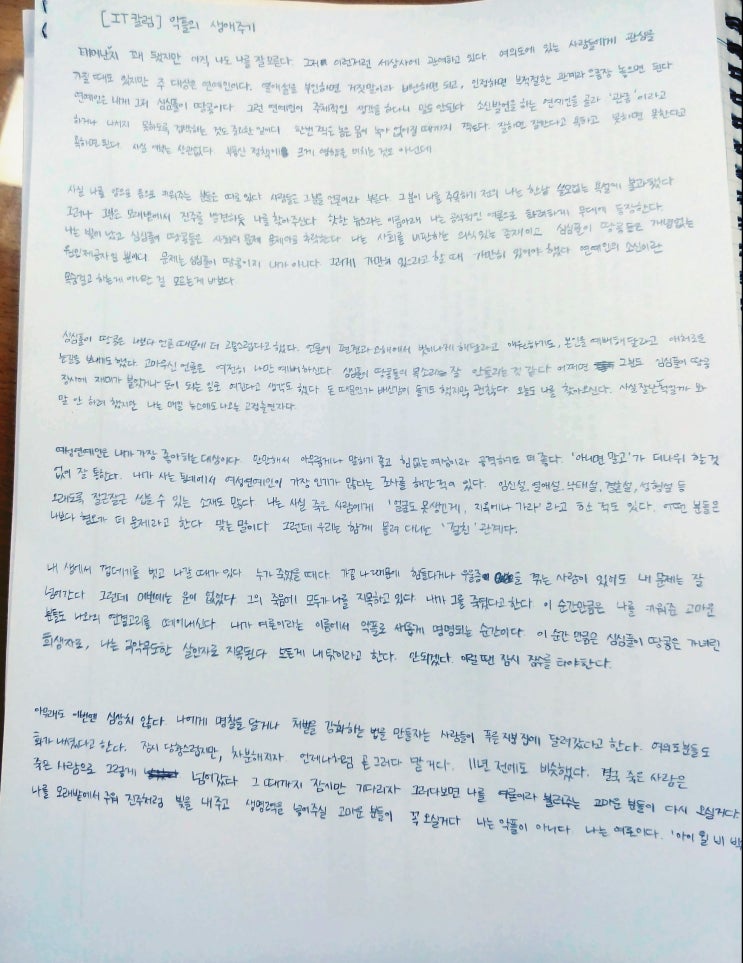 [IT칼럼] 악플의 생애주기
태어난지 꽤 됐지만 아직 나도 나를 잘 모른다. 그저 이런저런 세상사에 관여하고 있다. 여의도에 있는 사람들에게 관심을
가질 때도 있지만 주 대상은 연예인이다. 열애설을 부인하면 거짓말이라 비난하면 되고, 인정하면 부적절한 관계라 으름장 놓으면 된다
연예인은 내게 그저 심심풀이 땅콩이다. 그런 연예인이 주체적인 생각을 하다니 말도 안된다. 소신발언을 하는 연예인을 골라 '관종'이라고
하거나 나서지 못하도록 겁박하는 것도 중요한 일이다. 한번 찍은 놈은 몸이 녹아 없어질 때까지 찍는다. 잘하면 잘한다고 욕하고 못하면 못한다고
욕하면 된다. 사실 이유는 상관없다. 부동산 정책에 크게 영향을 미치는 것도 아닌데
사실 나를 양으로 음으로 키워주는 분들은 따로 있다 사람들은 그분을 언론이라 부른다. 그분이 나를 주목하기 전의 나는 한낱 쓸모없는 욕설에 불과했다
그러나 그분은 모래밭에서 진주를 발견하듯 나를 찾아주신다. 핫한 뉴스라는 이름아래 나는 공식적인 여론으로 화려하게 무대에 등장한다.
나는 빛이 났고 심심풀이 땅콩들은 사회의 문제 문제아로 추락한다. 나는 사회를 비판하는 의식있는 존재이고 심심풀이 땅콩들은 개념없는
원인제공자일 뿐이다. 문제는 심심풀이 땅콩이지 내가 아니다. 그러게 가만히 있으라고 할 때 가만히 있어야 했다 연예인의 소신이란
목숨걸고 하는게 아니란 걸 모르는게 바보다.
심심풀이 땅콩은 나보다 언론 때문에 더 고통스럽다고 했다. 언론에 편견과 오해에서 벗어나게 해달라고 애원하기도, 본인을 예뻐해 달라고 애처로운
눈길을 보내기도 했다. 고마우신 언론은 여전히 나만 예뻐하신다. 심심풀이 땅콩들의 목소리는 잘 안들리는 것 같다 어쩌면 그분도 심심풀이 땅콩
장사에 재미가 붙었거나 돈이 되는 일로 여긴다고 생각도 했다 돈 때문인가 배신감이 들기도 했지만, 괜찮다. 오늘도 나를 찾아오신다. 사실 잘난척일까 봐
말 안 하려 했지만 나는 매일 뉴스에도 나오는 고정출연자다.
여성연예인은 내가 가장 좋아하는 대상이다. 만만해서 아무렇게나 말하기 좋고 힘 없는 여성이라 공격하기도 더 좋다. '아니면 말고'가 더나위 할 것
없이 잘 통한다. 내가 사는 동네에서 여성연예인이 가장 인기가 많다는 조사를 해간 적이 있다. 임신설, 열애설, 낙태설, 결혼설, 성형설 등
오래도록 질근질근 씹을 수 있는 소재도 많다. 나는 사실 죽은 사람에게 '얼굴도 못생긴게, 지옥에나 가라' 라고 한 적도 있다. 어떤 분들은
나보다 혐오가 더 문제라고 한다. 맞는 말이다. 그런데 우리는 함께 몰려 다니는 '절친' 관계다.
내 생에서 껍데기를 벗고 나갈 때가 있다. 누가 죽었을 때다. 가끔 나 때문에 힘들다거나 우울증을 겪는 사람이 있어도 내 문제는 잘
넘어간다 그런데 이번에는 운이 없었다. 그의 죽음에 모두가 나를 지목하고 있다. 내가 그를 죽였다고 한다. 이 순간만큼은 나를 키워준 고마운
분들도 나와의 연결고리를 떼어내신다. 내가 여론이라는 이름에서 악플로 새롭게 명명되는 순간이다. 이 순간 만큼은 심심풀이 땅콩은 가녀린
희생자로, 나는 극악무도한 살인자로 지목된다. 모든게 내 탓이라고 한다. 안되겠다. 이럴 땐 잠시 잠수를 타야한다.
아무래도 이번엔 심상치 않다. 나에게 명찰을 달거나 처벌을 강화하는 법을 만들자는 사람들이 푸른 지붕 집에 달려갔다고 한다. 여의도 분들도
화가 나셨다고 한다. 잠시 당황스럽지만, 차분해지자 언제나처럼 곧 그러다 말 거다. 11년 전에도 비슷했다. 결국 죽은 사람은
죽은 사람으로 그렇게 넘어갔다 그 때까지 잠시만 기다리자 그러다보면 나를 여론이라 불러주는 고마운 분들이 다시 오실거다
나를 모래밭에서 구워 진주처럼 빛을 내 주고 생명력을 넣어주실 고마운 분들이 꼭 오실거다 나는 악플이 아니다. 나는 여론이다. '아이 윌 비 백